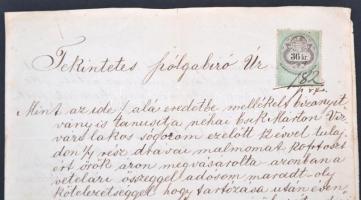 Tekintetes főolgabiró Úr
36 kr.
182
Mint az ide 1 alá eredetbe mellékelt bizonyít
vány is tanusitja néhai bsk. Márton Viz
vári lakos sógorom ezelőtt 12 évvel tulaj
don 1/4 rész drávai malmomat Koptoszt
ért örök áron megvásárolta azonban a
vételári összeggel adósom maradt oly
kötelezettséggel hogy tartozása után éven